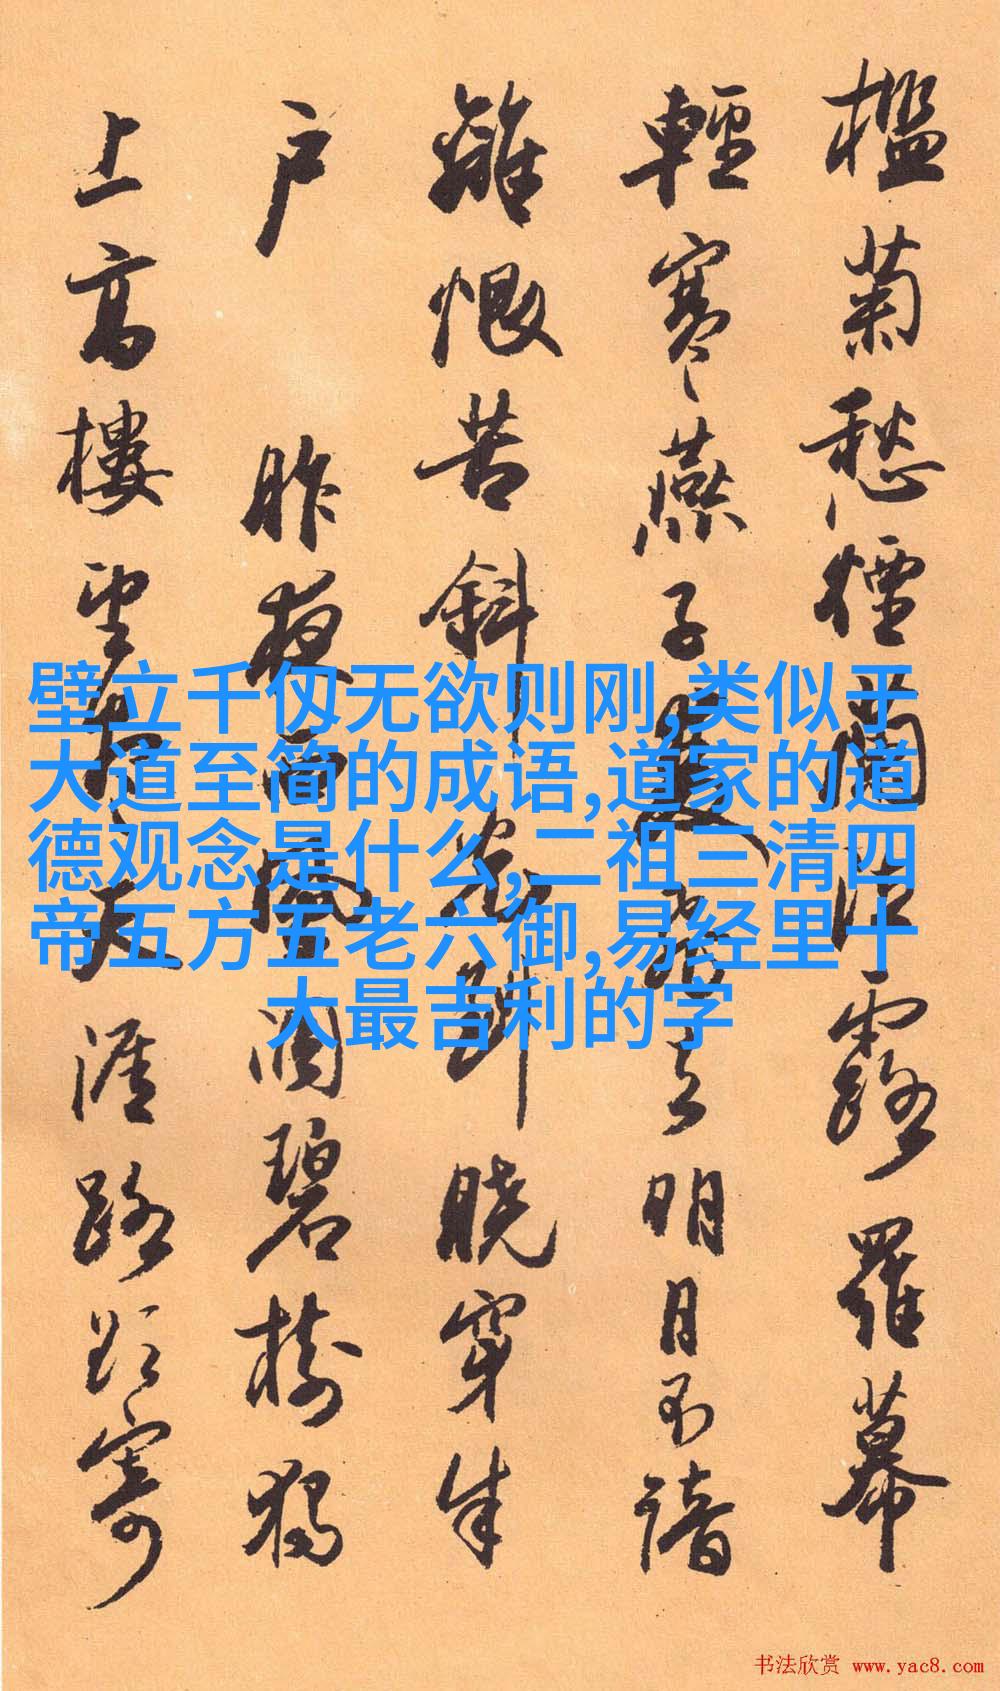 檻菊愁煙蘭泣露羅幕
輕寒燕子雙飛去明月不諳
離恨苦斜光到曉穿朱
户 昨夜西風凋碧樹獨
上高樓望盡天涯路欲寄
壁立千仞无欲则刚,类似于
大道至简的成语,道家的道
德观念是什么,二祖三清四
帝五方五老六御,易经里十
大最吉利的字
书法欣赏 www.yac8.com